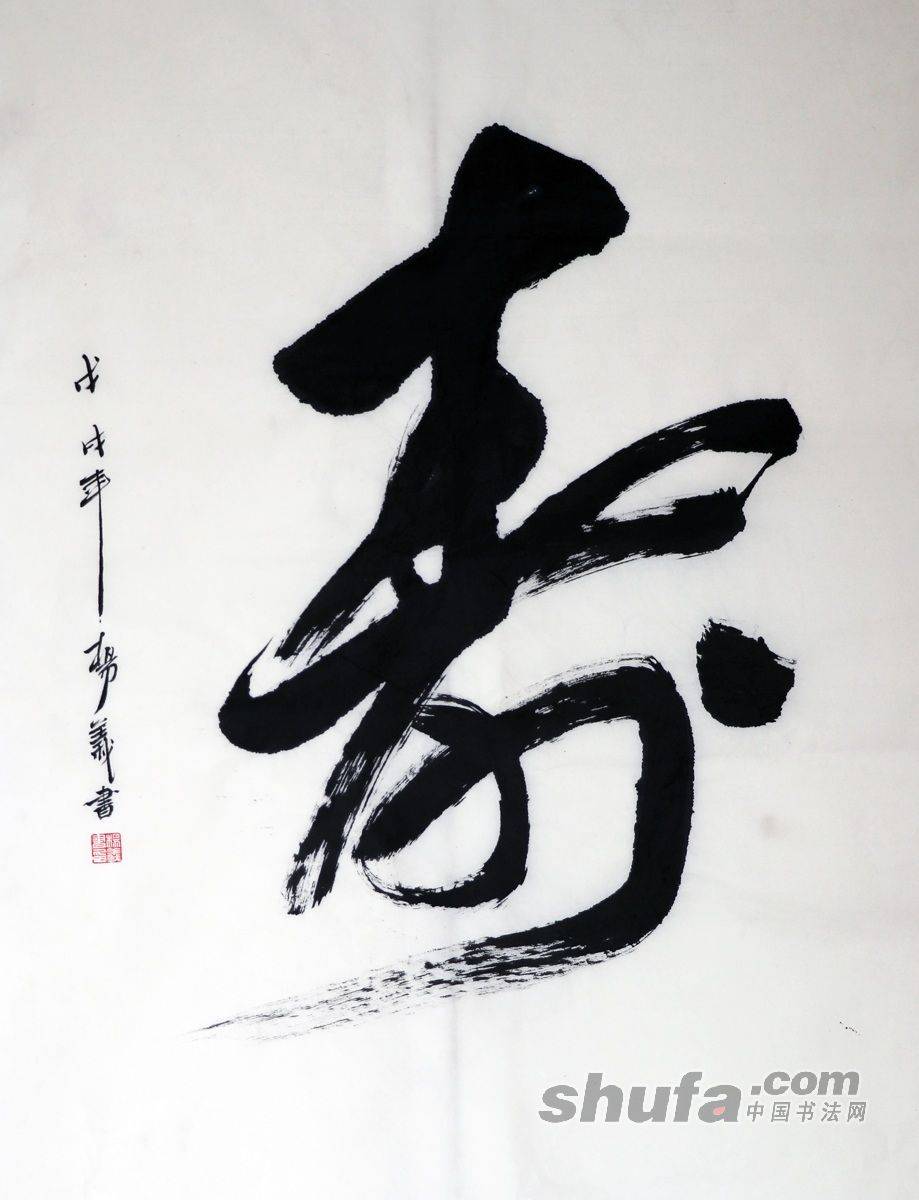 寿
戊戌年
楊義書
shufa.com
中国书法网